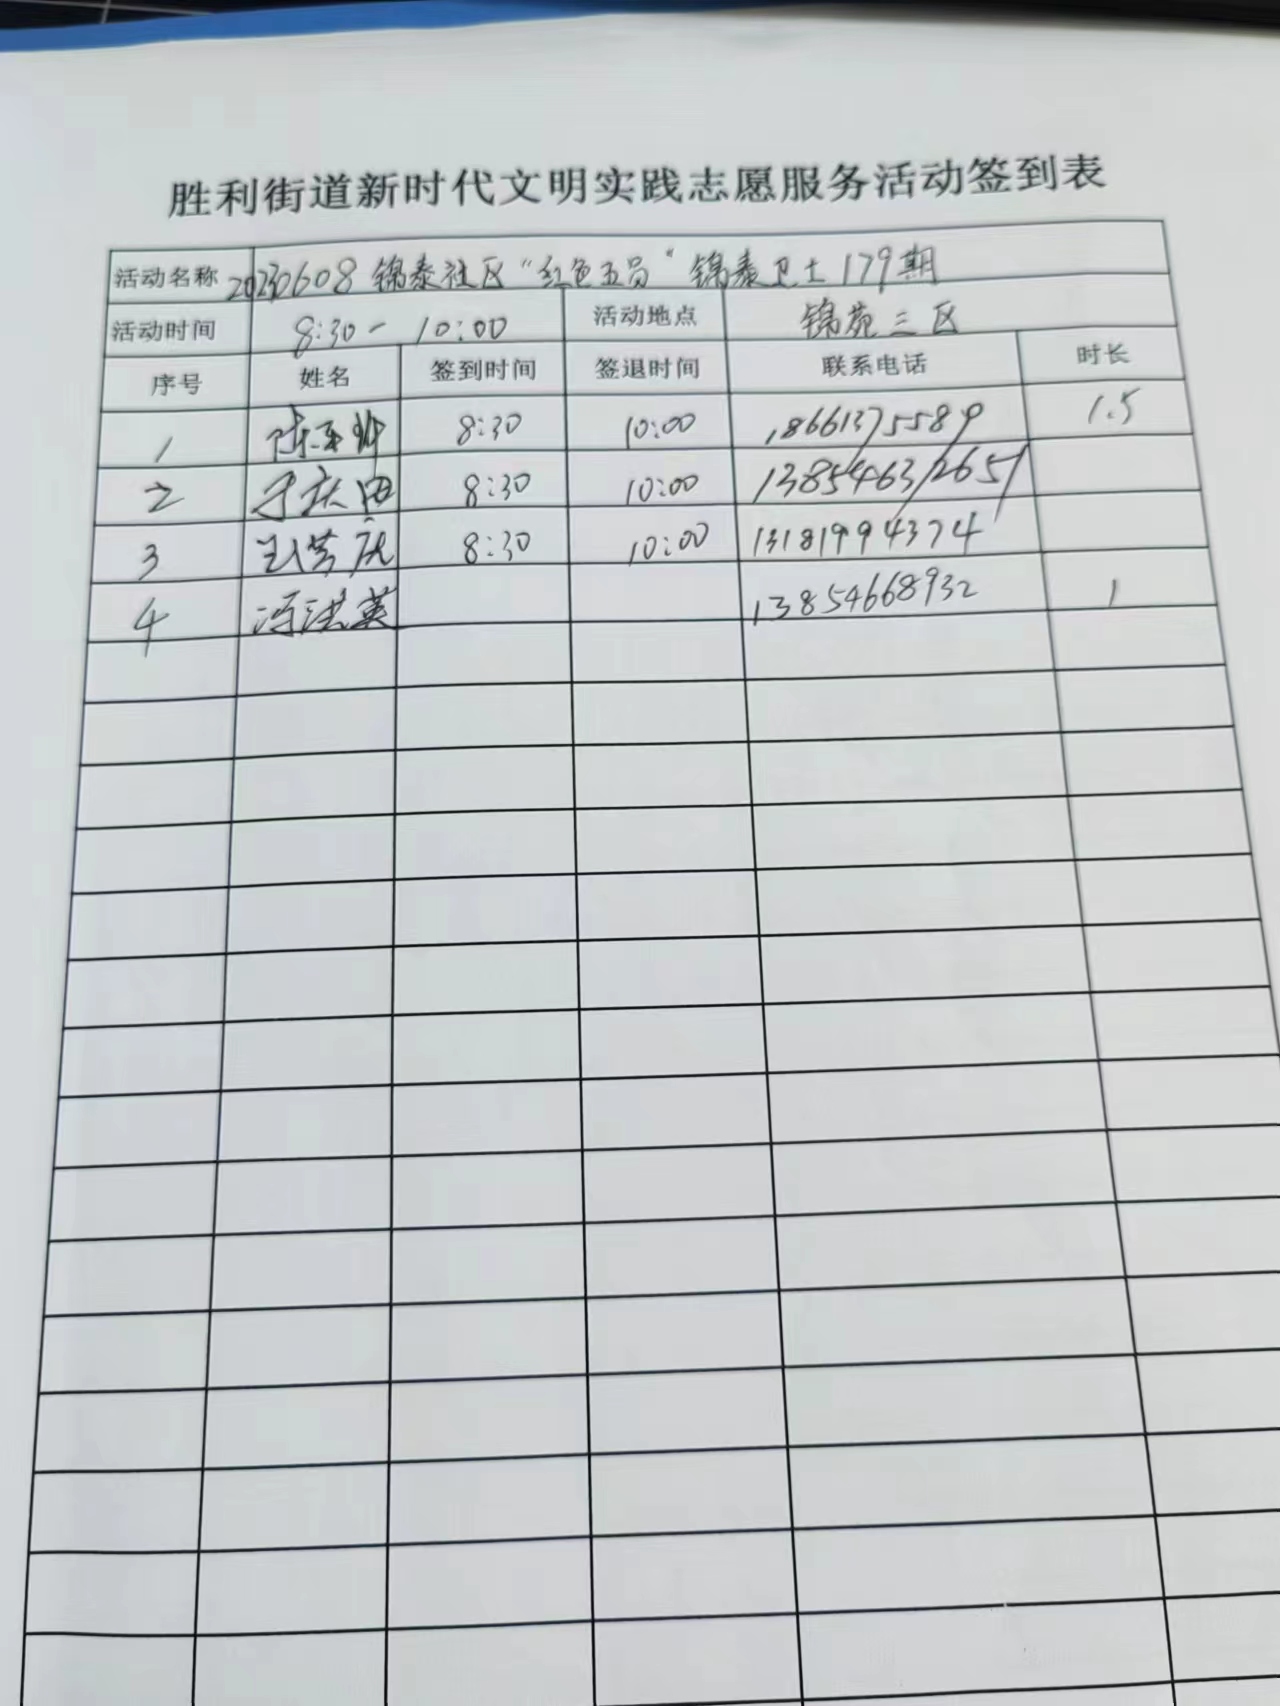 胜利街道新时代文明实践志愿服务活动签到表
活动名称 20230608 锦泰社区“红色五员”锦泰卫士179期
活动时间 8:30- 10:00 活动地点 锦苑三区
序号 姓名 签到时间 签退时间 联系电话 时长
1 8:30 10:00 18661375589 1.5
2 8:30 10:00 13854631265
3 8:30 10:00 13181994374
4 冯洪英 13854668932 1